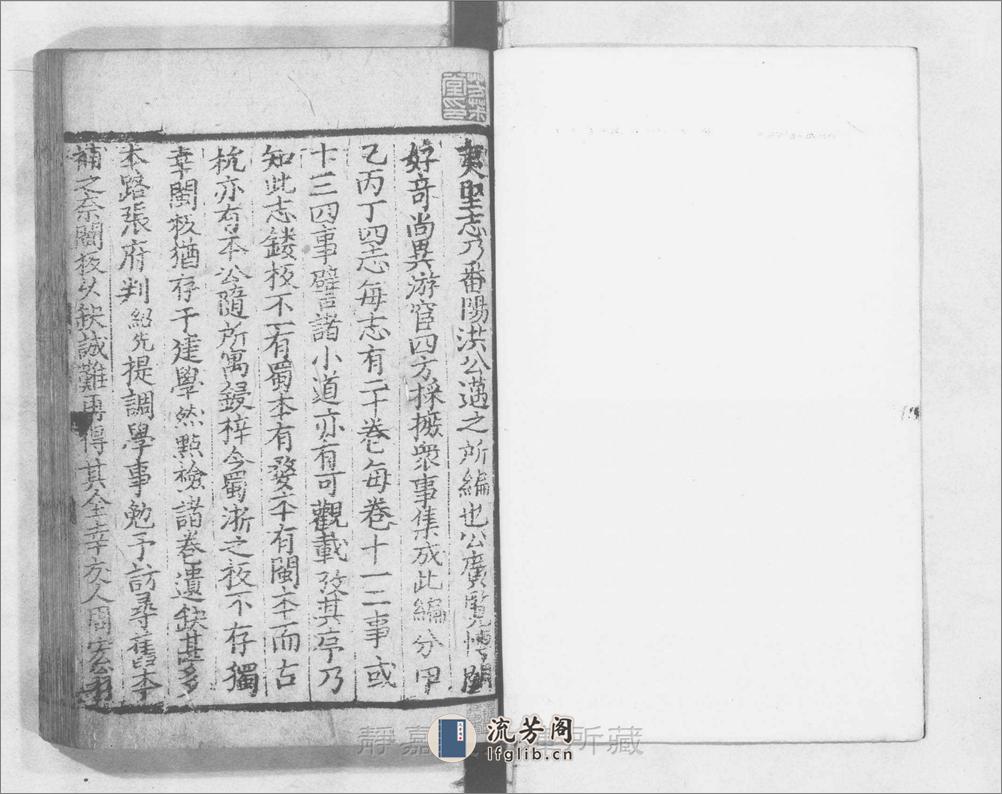 夷堅志乃番陽洪公邁之所編也公廣覽博聞
好奇尚異游宦四方採摭衆事集成此編分甲
乙丙丁四志每志有二十卷每卷十一二事或
十三四事譬言諸小道亦有可觀載攷其序乃
知此志鏤板不一有蜀本有婺本有閩本而古
杭亦有本公隨所寓鋟梓今蜀浙之板不存獨
幸閩板猶存于建學然點檢諸卷遺缺甚多
本路張府判紹先提調學事勉予訪尋舊本
補之奈閩板久缺誠難再得其全幸友人周宏羽
靜嘉 所藏
流芳阁
lfglib.cn